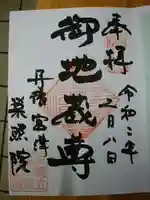 奉拝
令和二年
二月八日
御地蔵尊
丹後宮津
栄照院